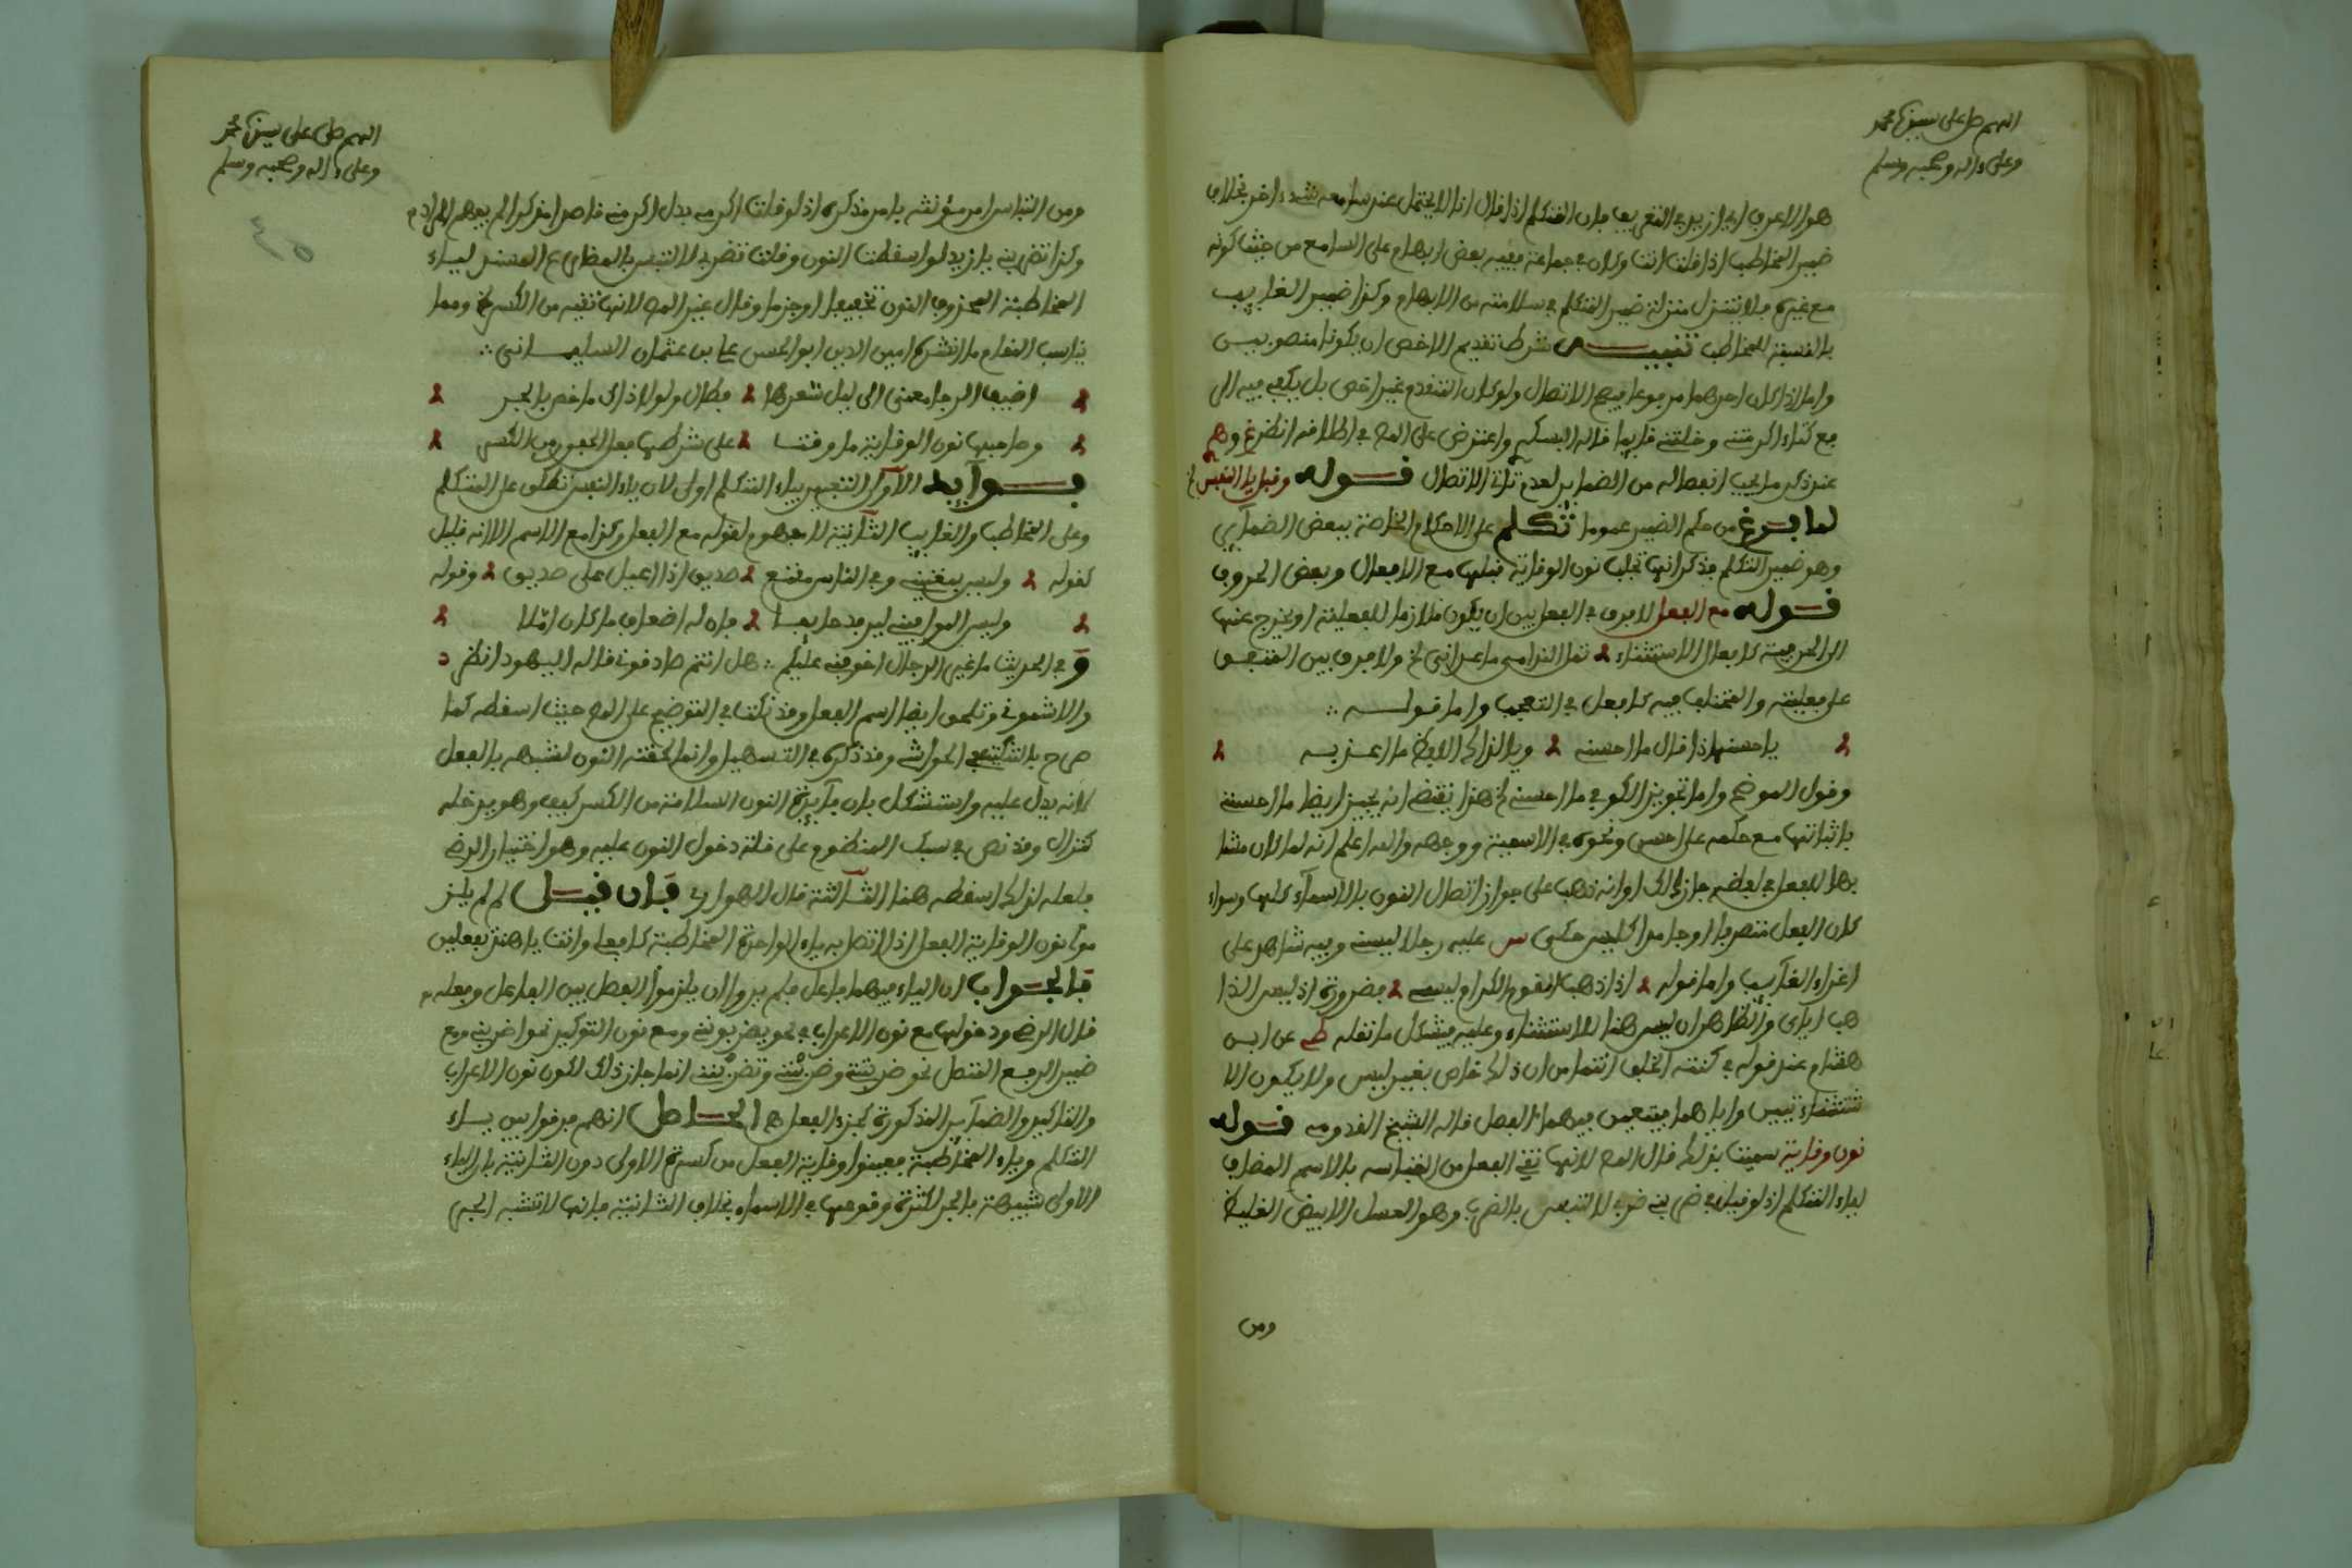 اللهم صل على سيدنا محمد
وعلى ءاله وصحبه وسلم
هو الاعرف اي ازيد في التعريف فان المتكلم اذا قال انا لا يحتمل عند سامعه شيء اخر بخلاف
ضمير المخاطب اذا قلت انت وكان في جماعة ففيه بعض ابهام على السامع من حيث كونه
مع غيره فلا يتنزل منزلة ضمير المتكلم في سلامته من الابهام وكذا ضمير الغايب
بالنسبة للمخاطب تنبيه شرط تقديم الاخص ان يكونا منصوبين
واما اذا كان احدهما مرفوعا فيصح الاتصال ولو كان المتقدم غير اخص بل يكفي فيه الى
مع كتاء اكرمتني وخلتني قايما قاله البسكري واعترض على المص في اطلاقه انظر
عند ذكر ما يجب انفصاله من الضماير لعدم تاتي الاتصال قوله وقبل يا النفس
لما فرغ من حكم الضمير عموما تكلم على الاحكام الخاصة ببعض الضماير
وهو ضمير المتكلم فذكر انها تجلب نون الوقاية قبلها مع الافعال وبعض الحروف
قوله مع الفعل لا فرق في الفعل بين ان يكون ملازما للفعلية او يخرج عنها
الى الحرفية كافعال الاستثناء تمل الندامى ما عداني الخ ولا فرق بين المتفق
على فعليته والمختلف فيه كافعل في التعجب واما قوله
يا حسنها اذا قال ما احسنه وبا لذاك الايظ ما اعذبه
وقول الموضح واما تجويز الكوفي ما احسني الخ هذا يقتضي انه يجيز ايضا ما احسنني
باثباتها مع حكمه على احسن ونحوه في الاسمية ووجهه والله اعلم انه لما كان مشا
بها للفعل في لفظه جاز ذلك او انه ذهب على جواز اتصال النون بالاسماء كلها وسواء
كان الفعل متصرفا او جامدا كليس حكى س عليه رجلا ليسني وفيه شاهد على
اغراء الغايب واما قوله اذ ذهب القوم الكرام ليسي فضرورة اذ ليس الذا
هب اياي والظاهر ان ليس هنا للاستثناء وعليه فيشكل ما نقله عن ابن
هشام عند قوله في كنته الخلف انتما من ان ذلك خاص بغير ليس ولا يكون الا
ستثناءيتين واياهما فيتعين فيهما الفصل قاله الشيخ القدومي قوله
نون وقاية سميت بذلك قال المص لانها تقي الفعل من التباسه بالاسم المضاف
لياء المتكلم اذ لو قيل في ضربني ضربي لالتبس بالضرب وهو العسل الابيض الغليظ
ومن
اللهم صل على سيدنا محمد
وعلى ءاله وصحبه وسلم
ومن التباس امر مؤنثه بامر مذكره اذ لو قلت اكرمي بدل اكرمني قاصدا مذكرا لم يفهم المراد
وكذا تضربني يا زيد لو اسقطت النون وقلت تضربي لالتبس بالمضارع المسند لياء
المخاطبة المحذوف النون تخفيفا او جزما وقال غير المص لانها تقيه من الكسر الخ ومما
يناسب المقام ما انشده امين الدين ابو الحسن علي بن عثمان السليماني
اضيف الرجا معنى الى ليل شعرها فطال ولولا ذاك ما خص بالجر
وحاجبها نون الوقاية ما وقت على شرطها فعل الجفون من الكسر
فوايد الاولى التعبير بياء المتكلم اولى لان ياء النفس تطلق على المتكلم
وعلى المخاطب والغايب الثانية لا مفهوم لقوله مع الفعل وكذا مع الاسم الا انه قليل
كقوله وليس بمعييني وفي الناس ممتع صديق اذا اعيى على صديق وقوله
وليس الموافيني ليرفد خايبا فان له اضعاف ما كان املا
و في الحديث ما غير الدجال اخوفني عليكم هل انتم صادقوني قاله اليهود انظر
والاشموني وتلحق ايضا اسم الفعل وقد نكت في التوضيح على المص حيث اسقطه كما
صرح بالتنكيت الحواشي وقد ذكره في التسهيل وانما لحقته النون لشبهه بالفعل
لانه يدل عليه واستشكل بان فايدة النون السلامة من الكسر كيف وهو يدخله
كنزال وقد نص في سبك المنظوم على قلة دخول النون عليه وهو اختيار الرضي
فلعله لذلك اسقطه هنا الثالثة قال الهواري فان قيل لم لم يلز
موا نون الوقاية الفعل اذا اتصل به ياء الواحدة المخاطبة كافعلي وانت يا هند تفعلين
فالجواب ان الياء فيهما فاعل فلم يروا ان يلزموا الفصل بين الفاعل وفعله
قال الرضي ودخولها مع نون الاعراب في نحو يضربونني ومع نون التوكيد نحو اضربنني ومع
ضمير الرفع المتصل نحو ضربتني وضربنني وتضربنني انما جاز ذلك لكون نون الاعراب
والتاكيد والضماير المذكورة كجزء الفعل ها الحاصل انهم فرقوا بين ياء
المتكلم وياء المخاطبة فعينوا وقاية الفعل من كسرة الاولى دون الثانية بان الياء
الاولى شبيهة بالجر لكثرة وقوعها في الاسماء بخلاف الثانية فانها لا تشبه الجر